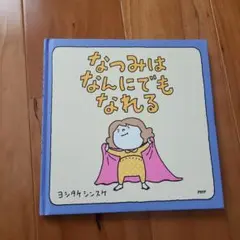 なつみは
なんにでも
なれる
ヨシタケシンスケ
PHP